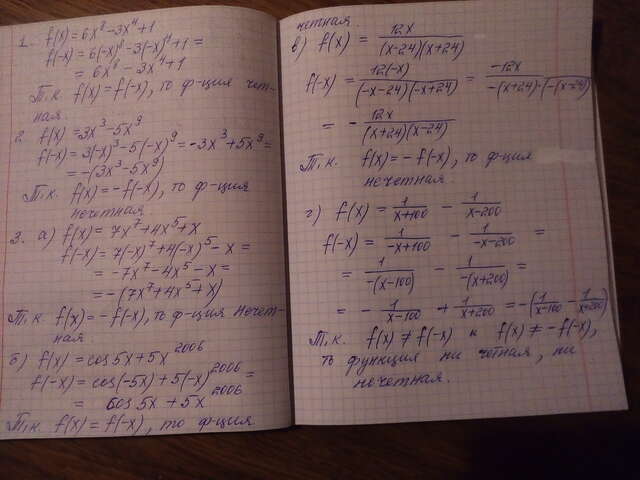 1. f(x) = 6x⁸ - 3x⁴ + 1
f(-x) = 6(-x)⁸ - 3(-x)⁴ + 1 =
= 6x⁸ - 3x⁴ + 1
Т.к. f(x) = f(-x), то ф-ция чет-
ная
2. f(x) = 3x³ - 5x⁹
f(-x) = 3(-x)³ - 5(-x)⁹ = -3x³ + 5x⁹ =
= -(3x³ - 5x⁹)
Т.к. f(x) = -f(-x), то ф-ция
нечетная.
3. а) f(x) = 7x⁷ + 4x⁵ + x
f(-x) = 7(-x)⁷ + 4(-x)⁵ - x =
= -7x⁷ - 4x⁵ - x =
= -(7x⁷ + 4x⁵ + x)
Т.к. f(x) = -f(-x), то ф-ция нечет-
ная.
б) f(x) = cos5x + 5x²⁰⁰⁶
f(-x) = cos(-5x) + 5(-x)²⁰⁰⁶ =
= cos5x + 5x²⁰⁰⁶
Т.к. f(x) = f(-x), то ф-ция
четная.
в) f(x) = 12x/((x-24)(x+24))
f(-x) = 12(-x)/((-x-24)(-x+24)) = -12x/(-(x+24)·(-(x-24))
= - 12x/((x+24)(x-24))
Т.к. f(x) = -f(-x), то ф-ция
нечетная.
г) f(x) = 1/(x+100) - 1/(x-200)
f(-x) = 1/(-x+100) - 1/(-x-200) =
= 1/(-(x-100)) - 1/(-(x+200)) =
= - 1/(x-100) + 1/(x+200) = -(1/(x-100) - 1/(x+200))
Т.к. f(x) ≠ f(-x) и f(x) ≠ -f(-x),
то функция ни четная, ни
нечетная.